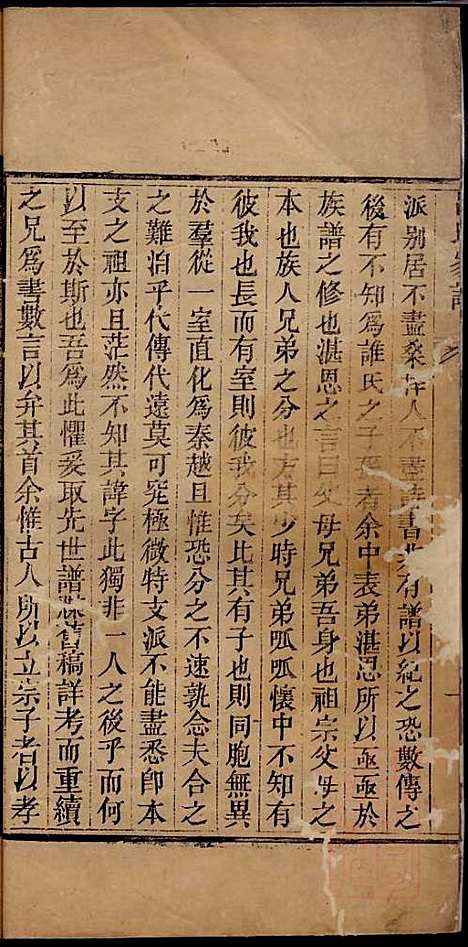 派别居不盡桑梓人不盡詩書非有譜以紀之恐數傳之
後有不知為誰氏之子孫者余中表弟湛恩所以亟亟於
族譜之修也湛恩之言曰父母兄弟吾身也祖宗父母之
本也族人兄弟之分也方其少時兄弟呱呱懷中不知有
彼我也長而有室則彼我分矣比其有子也則同胞無異
於羣從一室直化為秦越且惟恐分之不速孰念夫合之
之難洎乎代傳代遠莫可究極微特支派不能盡悉卽本
支之祖亦且茫然不知其諱字此獨非一人之後乎而何
以至於斯也吾為此懼爰取先世譜牒舊稿詳考而重續
之兄為書數言以弁其首余惟古人所以立宗子者以孝